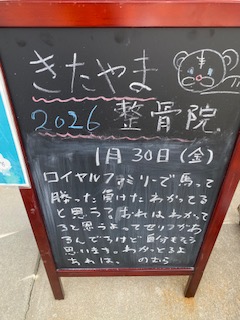 きたやま
2026 整骨院
1月30日(金)
ロイヤルファミリーで馬って
勝った負けたわかってる
と思う?あれはわかって
ると思うよってセリフがあ
るんですけど自分もそう
思います。わかってるよ
あれは。 のむら